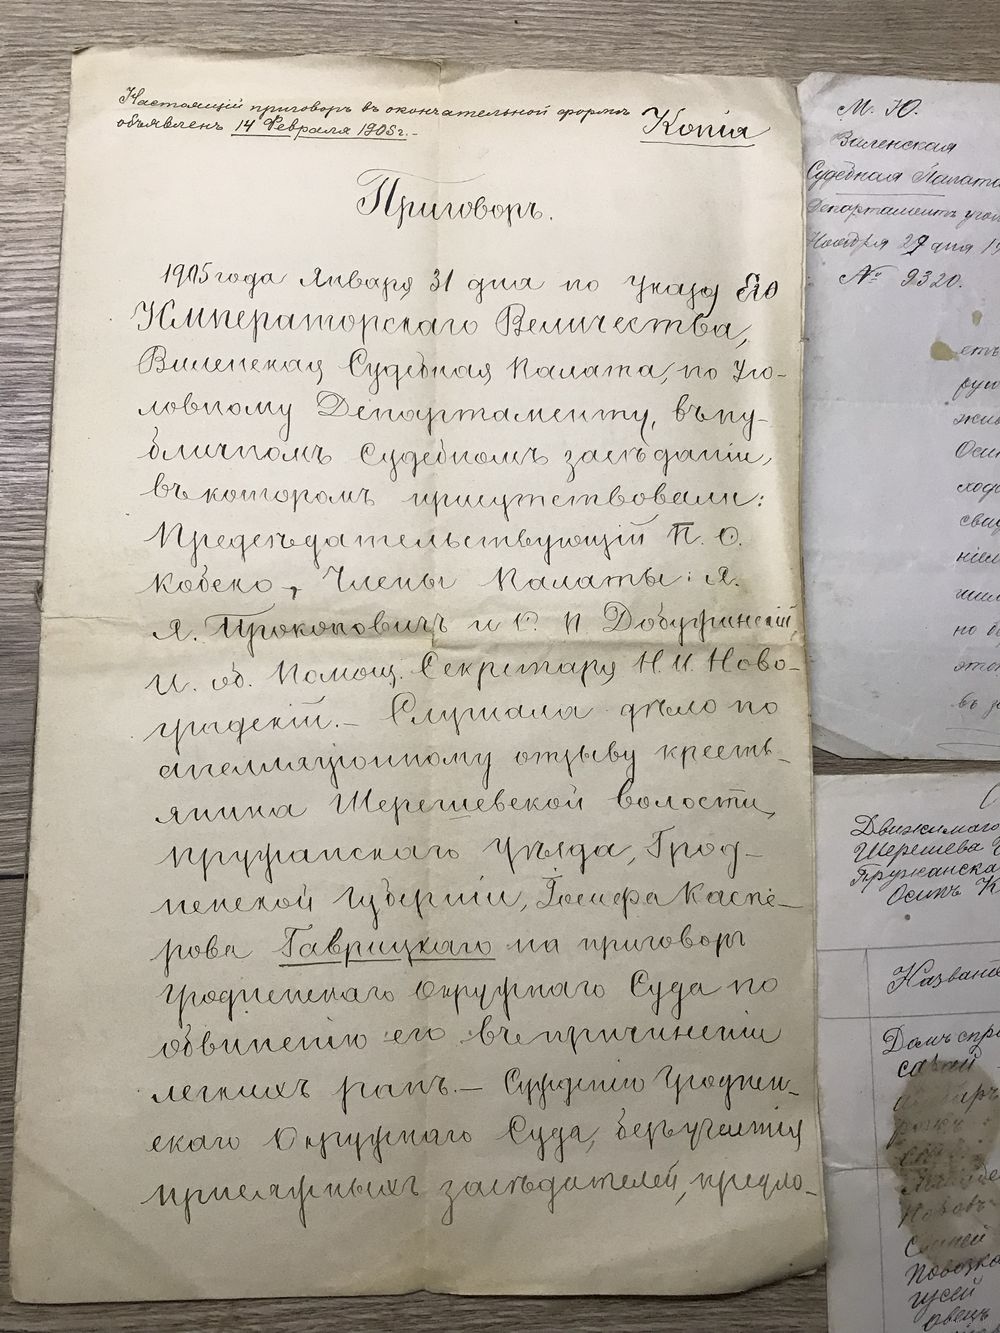 Настоящій приговоръ въ окончательной формѣ
объявленъ 14 Февраля 1905 г.-
Копія
Приговоръ.
1905 года Января 31 дня по указу Его
Императорскаго Величества,
Виленская Судебная Палата, по Уго-
ловному Департаменту, въ пу-
бличномъ судебномъ засѣданіи,
въ которомъ присутствовали:
Предсѣдательствующій П. О.
Кобеко, Члены Палаты: Я.
Я. Прокоповичъ и С. П. Добужинскій
И. об. Помощ. Секретаря Н. И. Ново-
градскій.- Слушала дѣло по
апелляціонному отзыву кресть-
янина Шерешевской волости,
Пружанскаго уѣзда, Грод-
ненской губерніи, Іосифа Каспе-
рова Гаврицкаго на приговоръ
Гродненскаго Окружнаго Суда по
обвиненію его въ причиненіи
легкихъ ранъ.- Сужденію Гроднен-
скаго Окружнаго Суда, безъ участія
присяжныхъ засѣдателей, предло-
М. Ю.
Виленская
Судебная Палата
Департаментъ
Ноября 27 дня
№ 9320.
етъ
Оси
но
въ
Движимаго
Шерешева
Пружанска
Осипъ К
Назван
Домъ
сарай
Повозка
гусей
овецъ